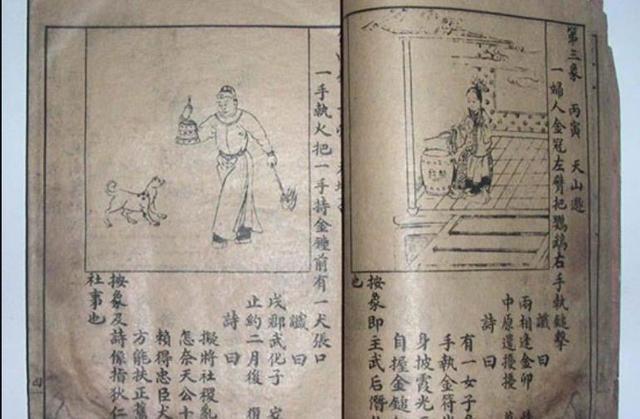 第三象 丙寅 天山遯
一婦人金冠左臂把鸚鵡右手執鎚擊
讖曰
兩相逢金卯
中原還擾擾
詩曰
有一女子
手執金符
身披霞光
自握金鎚
按象即主武后僭
也
一手執火把一手持金鍾前有一犬張口
讖曰
戌郡武化子
止約二月後 復
詩曰
擬將社稷亂
怎奈天公十
賴得忠臣犬
方能扶正舊
按象及詩像指狄仁
社事也
四